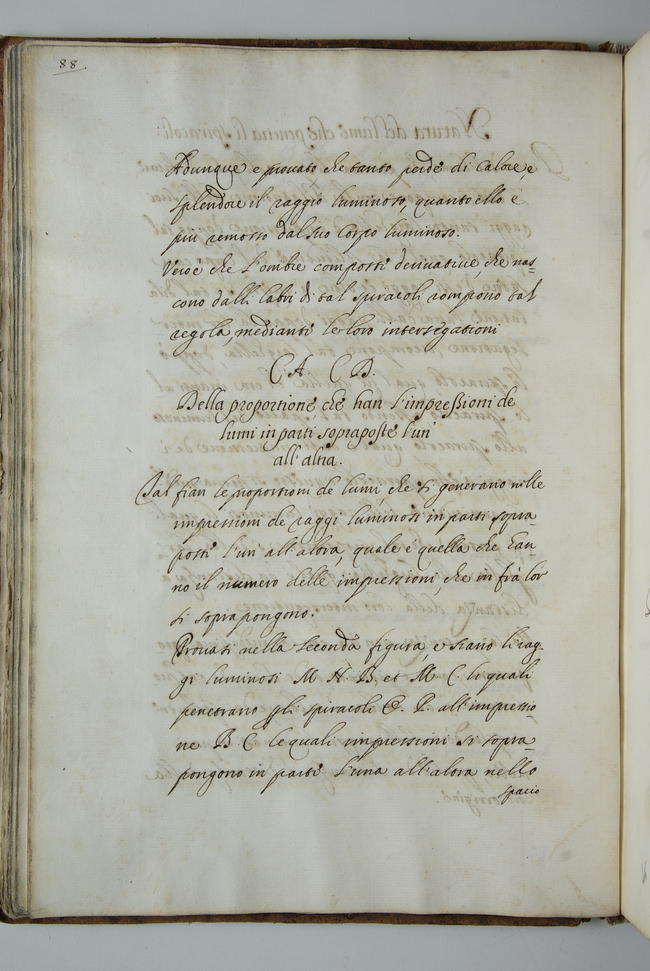 88.
Adunque e provato che tanto perde di Calore, e
splendore il raggio luminoso, quanto ello e
più remosso dal suo Corpo luminoso.
Vero è che l'ombre composti derivative, che nas=
cono dalli labri di tal spiracoli rompono tal
regola, medianti le loro intersegationi
C. A. C. D.
Della proportione, che han l'impreßioni de
lumi in parti sopraposte l'un'
all'altra.
Tal fian le proportioni de lumi, che si generano nelle
impressioni de raggi luminosi in parti sopra=
posti l'un' all'altra, quale e quella che han=
no il numero delle impressioni, che in frà lor
si soprapongono.
Provasi nella seconda figura, e siano li rag=
gi luminosi M N. B. et M. C. li quali
penetrano gli spiracoli O. P. all'impressio=
ne B C. le quali impressioni si sopra=
pongono in parte l'una all'altra nello
spacio